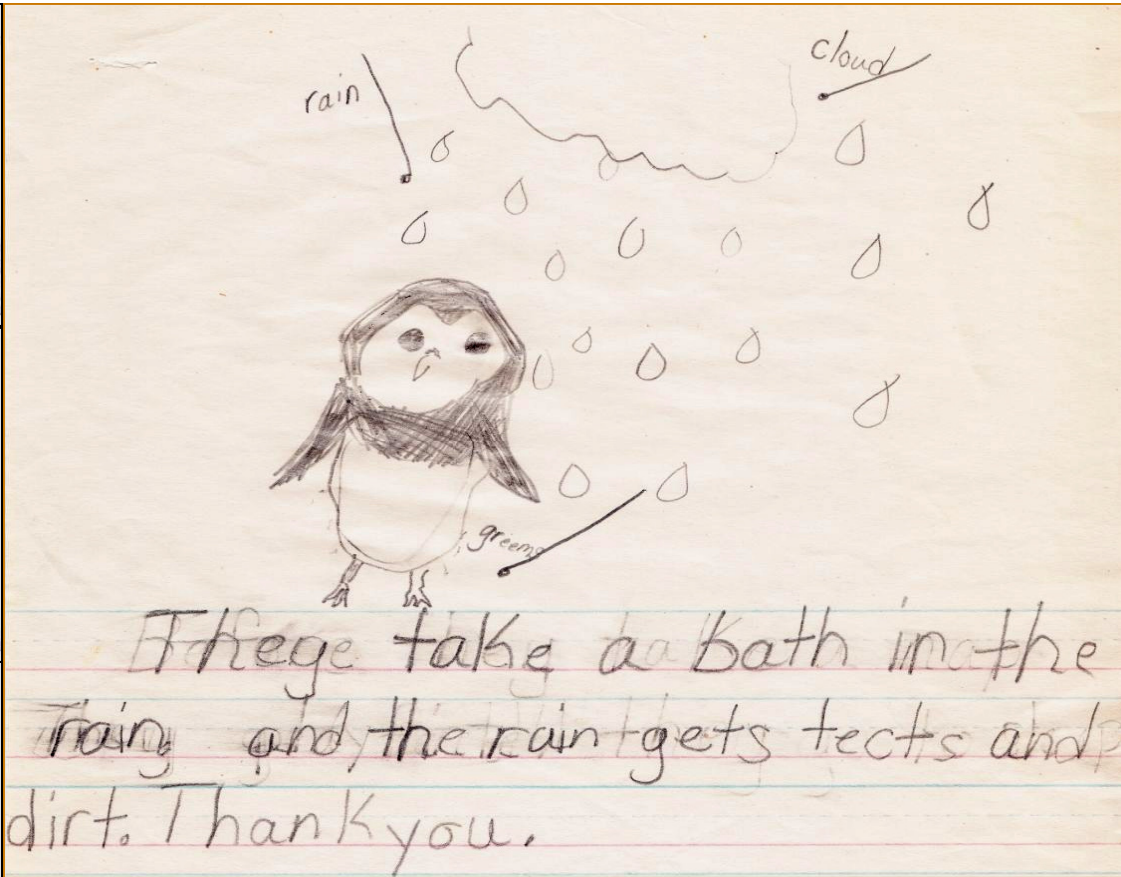 cloud
rain
greems
Thege take a bath in the
rain and the rain gets tects and
dirt. Thank you.